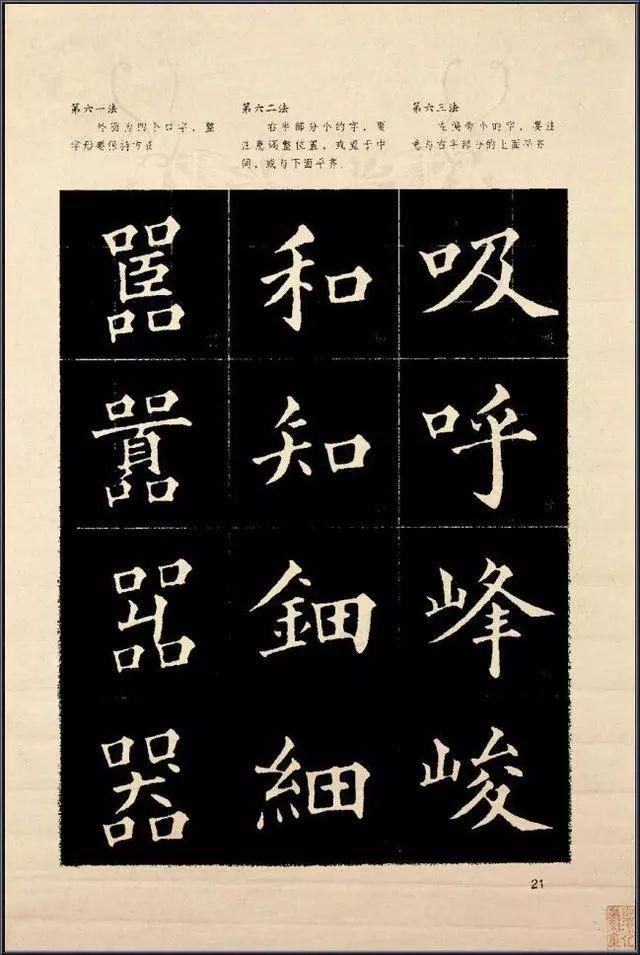 第六一法
外面为四个口字，整
字形要保持方正
第六二法
右半部分小的字，要
注意调整位置，或置于中
间，或与下面平齐
第六三法
左偏旁小的字，要注
意与右半部分的上面平齐
嚚 和 吸
囂 知 呼
嘂 鈿 峰
器 細 峻
21